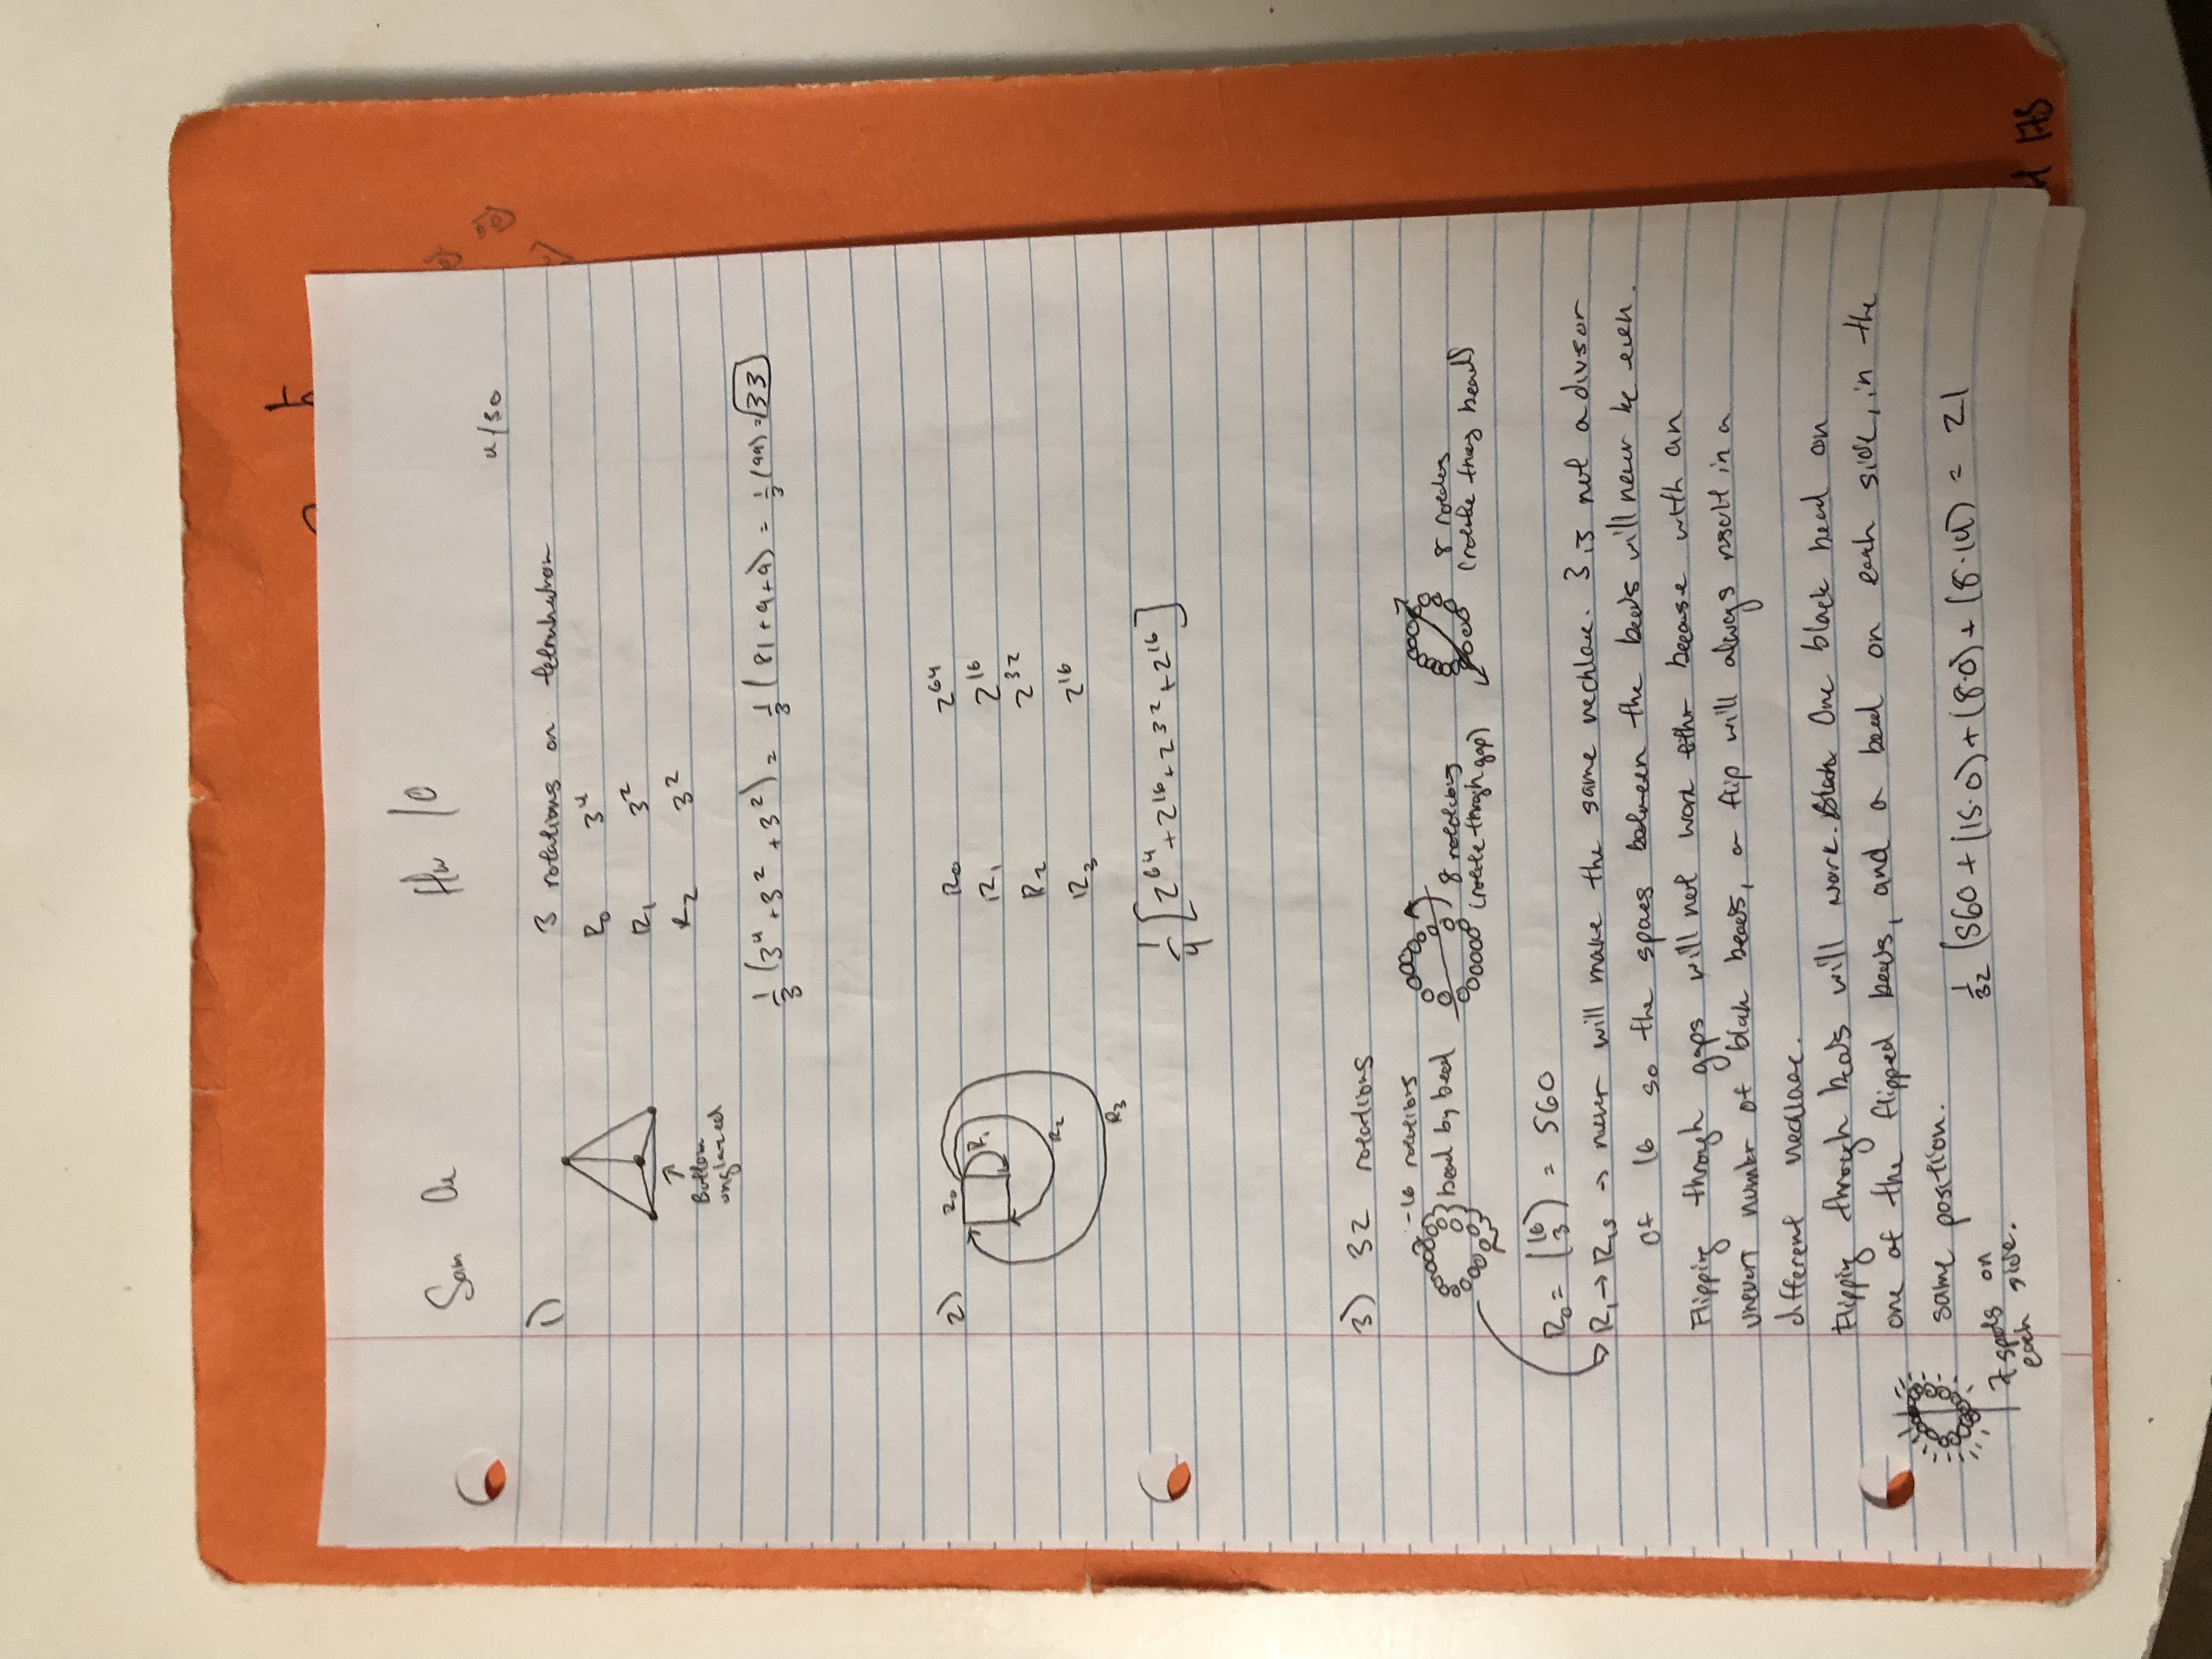 Sam
Hw 10
4/30
1)
3 rotations on tetrahedron
R₀ 3⁴
R₁ 3²
R₂ 3²
↑
Bottom
unglazed
1/3 (3⁴ + 3² + 3²) = 1/3 (81 + 9 + 9) = 1/3 (99) = 33
2)
R₀
R₁
R₂
R₃
R₀ 2⁶⁴
R₁ 2¹⁶
R₂ 2³²
R₃ 2¹⁶
1/4 [2⁶⁴ + 2¹⁶ + 2³² + 2¹⁶]
3) 32 rotations
- 16 rotations
bead by bead
8 rotations
(rotate through gap)
8
(rotate bead)
R₀ = (16 3) = 560
R₁ → R₁₅ → never will make the same necklace. 3 is not a divsor
of 16 so the spaces between the beads will never be even.
Flipping through gaps will not work because with an
number of blak beads, a flip will always result in a
different necklace.
Flipping through beads will work. One black bead on
one of the flipped beads, and a bead on each side, in the
same position.
7 spots on
each side.
1/32 (560 + (15·0) + (8·0) + (8·14) = 21
H 175